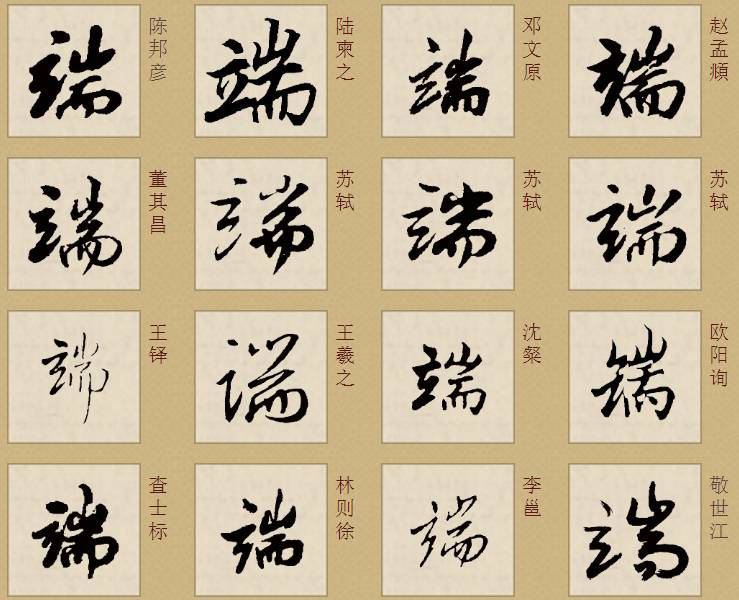 端 陈邦彦 端 陆柬之 端 邓文原 端 赵孟頫
端 董其昌 端 苏轼 端 苏轼 端 苏轼
端 王铎 端 王羲之 端 沈粲 端 欧阳询
端 查士标 端 林则徐 端 李邕 端 敬世江